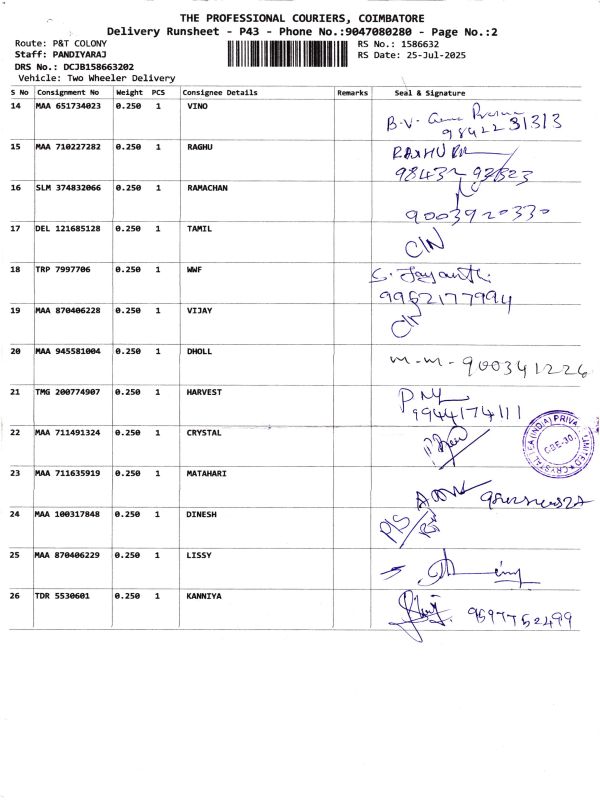 THE PROFESSIONAL COURIERS, COIMBATORE
Delivery Runsheet - P43 - Phone No.:9047080280 - Page No.:2
Route: P&T COLONY
RS No.: 1586632
Staff: PANDIYARAJ
RS Date: 25-Jul-2025
DRS No.: DCJB158663202
Vehicle: Two Wheeler Delivery
S No Consignment No Weight PCS Consignee Details Remarks Seal & Signature
14 MAA 651734023 0.250 1 VINO
B.V.
9842231313
15 MAA 710227282 0.250 1 RAGHU
RAGHU
16 SLM 374832066 0.250 1 RAMACHAN
9003920330
17 DEL 121685128 0.250 1 TAMIL
C/N
18 TRP 7997706 0.250 1 WWF
S. Jayanthi
9962177994
19 MAA 870406228 0.250 1 VIJAY
C/N
20 MAA 945581004 0.250 1 DHOLL
m-m-900341226
21 TMG 200774907 0.250 1 HARVEST
9944174111
22 MAA 711491324 0.250 1 CRYSTAL
CRYSTAL SEA (INDIA) PRIVATE LIMITED
CBE-30
23 MAA 711635919 0.250 1 MATAHARI
24 MAA 100317848 0.250 1 DINESH
P/S
25 MAA 870406229 0.250 1 LISSY
26 TDR 5530601 0.250 1 KANNIYA
9597752499